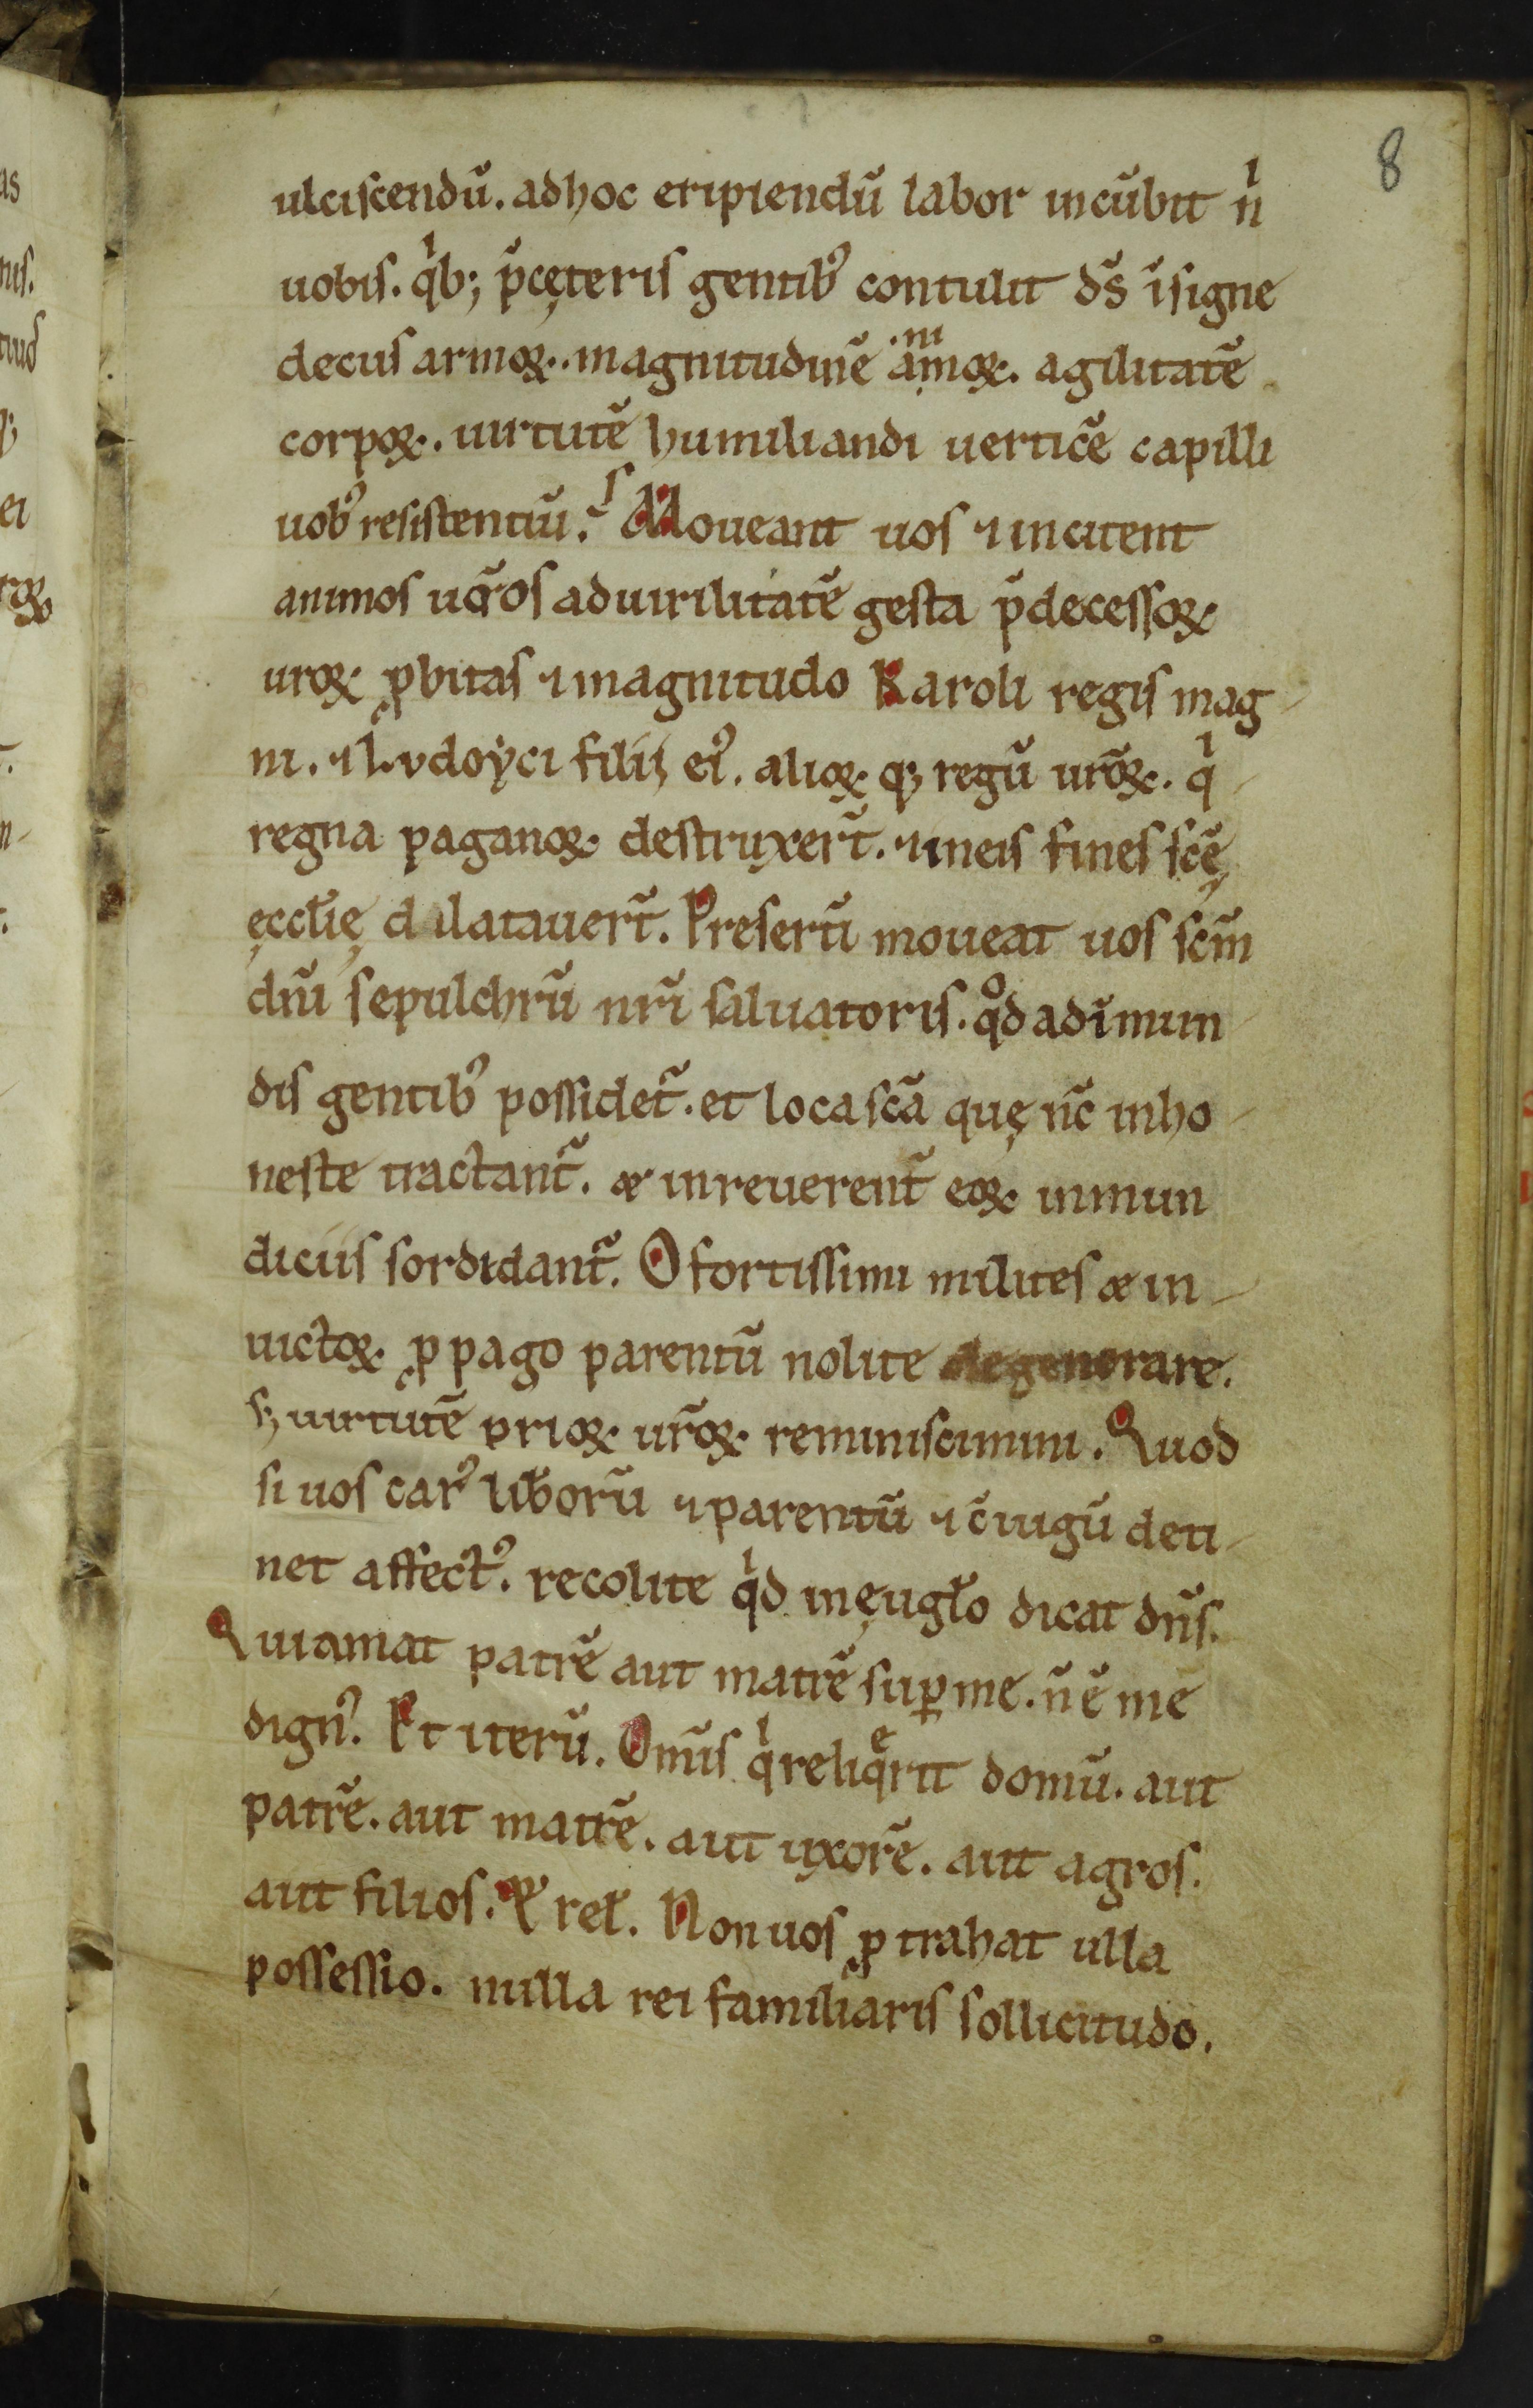 8
ulciscendū. adhoc eripiendū labor incūbit nͥ
uobis. qͥb; p̄cęteris gentibꝰ contulit ds̄ īsigne
decus armoꝝ. magnitudinē am̄oꝝ. agilitatē
ni
corpoꝝ. uirtutē humiliandi uerticē capilli
uobꝰ resistentiū. Moueant uos ⁊ incitent
animos ur̄os aduirilitatē gesta p̄decessoꝝ
uroꝝ ꝓbitas ⁊ magnitudo Karoli regis mag
ni. ⁊ Lvdoẏci filii eiꝰ. alioꝝ qꝫ regū ur̄oꝝ. qͥ
regna paganoꝝ destruxer̄t. ⁊ ineis fines scē
ęccl̄ię dilatauer̄t. Presertī moueat uos scm̄
dn̄i sepulchrū nr̄i saluatoris. qͦd adīmun
dis gentibꝰ possidet᷑. et loca scā quę nc̄ inho
neste tractant᷑. æ inreuerent᷑ eoꝝ inmun
diciis sordidant᷑. O fortissimi milites æ in
uictoꝝ ꝓpago parentū nolite degenerare.
sꝫ uirtutē prioꝝ ur̄oꝝ reminiscimini. Quod
si uos carꝰ lib̄orū ⁊ parentū ⁊ c̄iugū deti
net affectꝰ. recolite qͥd in ęugl̄o dicat dn̄s.
Qui amat patrē aut matrē suꝑ me. n̄ ē me
dignꝰ. Et iterū. Omīs qͥ reliqͤrit domū. aut
patrē. aut matrē. aut uxorē. aut agros.
aut filios. Et rel̄. Non uos ꝓtrahat ulla
possessio. nulla rei familiaris sollicitudo.